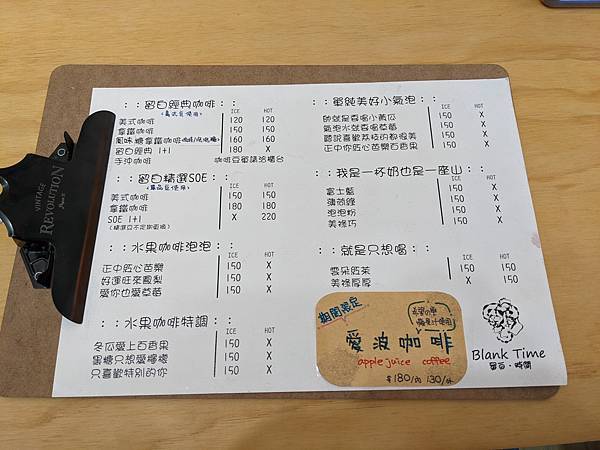 VINTAGE
REVOLUTION
Paris
：：留白經典咖啡：：
(義式豆使用)
ICE HOT
美式咖啡 120 120
拿鐵咖啡 150 150
風味糖拿鐵咖啡 160 160
留白經典 1+1 180 X
手沖咖啡 咖啡豆單請洽櫃台
：：留白精選SOE：：
(單品豆使用)
ICE HOT
美式咖啡 150 150
拿鐵咖啡 180 180
SOE 1+1 X 220
：：水果咖啡泡泡：：
ICE HOT
正中飪心芭樂 150 X
好運旺來鳳梨 150 X
愛你也愛草莓 150 X
：：水果咖啡特調：：
ICE HOT
冬瓜愛上百香果 150 X
黑糖只想愛檸檬 150 X
只喜歡特別的你 150 X
：：單純美好小氣泡：：
ICE HOT
帥就是喜喝小黃瓜 150 X
氣泡水就喜喝草莓 150 X
聽說喜歡荔枝的都很美 150 X
正中你飪心芭樂百香果 150 X
：：我是一杯奶也是一座山：：
ICE HOT
富士藍 150 X
蒲荷綠 150 X
泡泡粉 150 X
美祿巧 150 X
：：就是只想喝：：
ICE HOT
雲朵飪茶 150 150
美祿厚厚 150 X
期間限定
愛波咖啡
apple juice coffee
$180/內 130/外
Blank Time
留白・時間